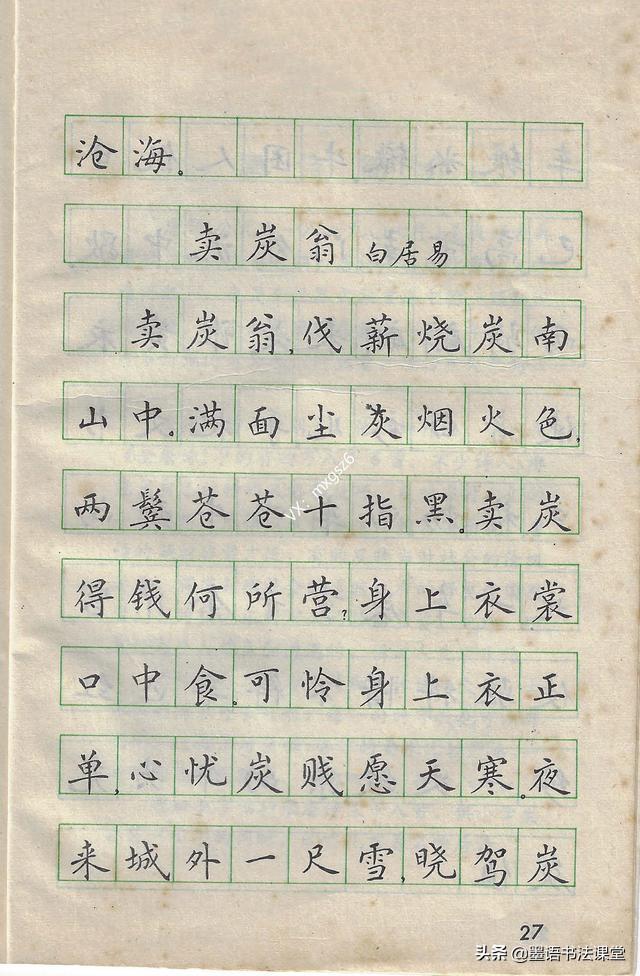 沧海。
卖炭翁 白居易
卖炭翁,伐薪烧炭南
山中。满面尘灰烟火色,
两鬓苍苍十指黑。卖炭
得钱何所营?身上衣裳
口中食。可怜身上衣正
单,心忧炭贱愿天寒。夜
来城外一尺雪,晓驾炭
27
VX: mxgsz6
头条 @墨语书法课堂